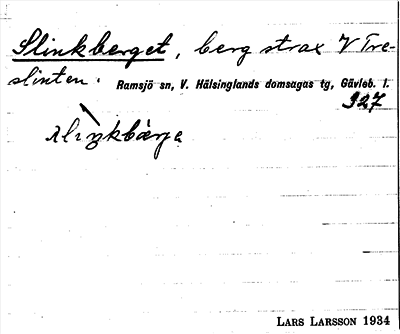 Slinkberget, berg strax V Tre-
slinten. Ramsjö sn, V. Hälsinglands domsagas tg, Gävleb. l.
327
slìŋkbärjə
LARS LARSSON 1934